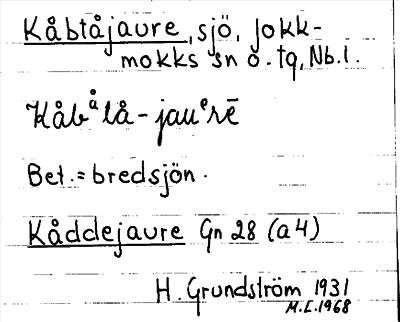 Kåbtåjaure, sjö, Jokk-
mokks sn o. tg, Nb.l.
Kåbålå-jauᵉrē
Bet. = bredsjön.
Kåddejaure Gn 28 (a4)
H. Grundström 1931
M.L. 1968